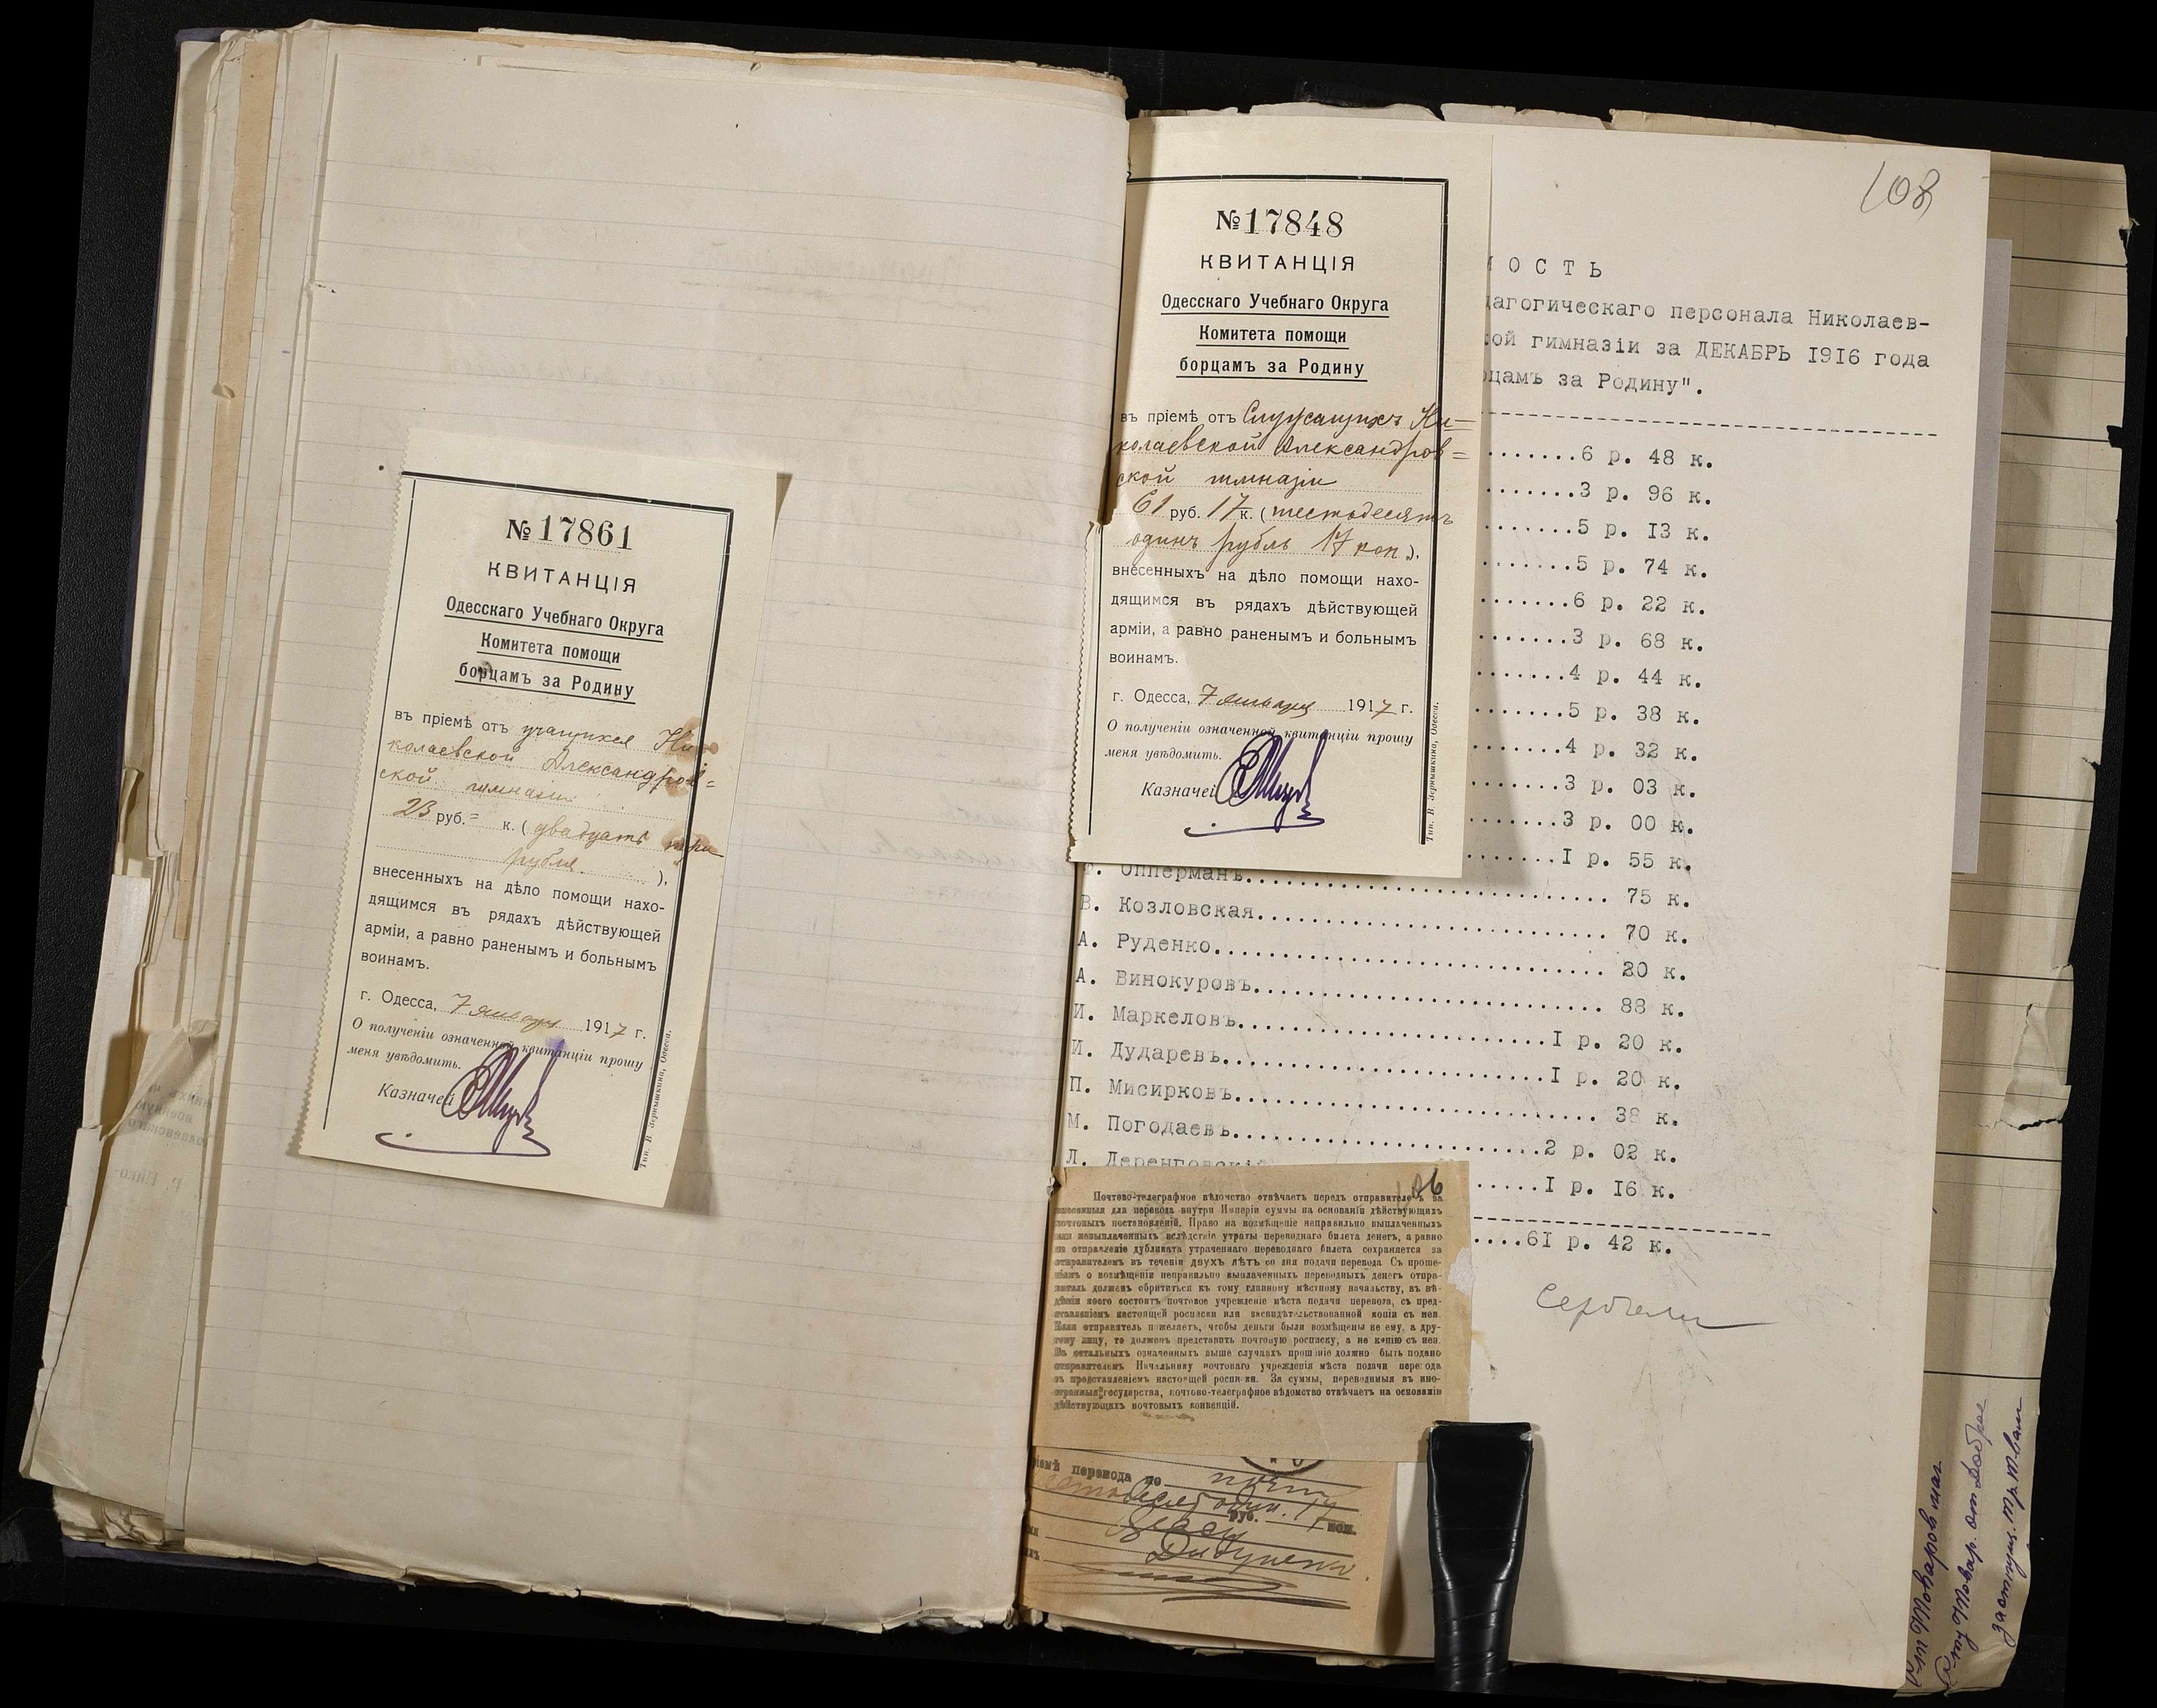 № 17861
КВИТАНЦІЯ
Одесскаго Учебнаго Округа
Комитета помощи
борцамъ за Родину
въ пріемѣ отъ учащихся Ни-
колаевской Александров=
ской гимназіи
23 руб. = к. (двадцать три
рубля ),
внесенныхъ на дѣло помощи нахо-
дящимся въ рядахъ дѣйствующей
арміи, а равно раненымъ и больнымъ
воинамъ.
г. Одесса, 7 января 1917 г.
О полученіи означенной квитанціи прошу
меня увѣдомить.
Казначей
Тип. В. Зернышкина, Одесса.
№ 17848
КВИТАНЦІЯ
Одесскаго Учебнаго Округа
Комитета помощи
борцамъ за Родину
въ пріемѣ отъ Служащихъ Ни=
колаевской Александров=
ской гимназіи
61 руб. 17 к. (шестьдесятъ
одинъ рубль 17 коп ),
внесенныхъ на дѣло помощи нахо-
дящимся въ рядахъ дѣйствующей
арміи, а равно раненымъ и больнымъ
воинамъ.
г. Одесса, 7 января 1917 г.
О полученіи означенной квитанціи прошу
меня увѣдомить.
Казначей
Тип. В. Зернышкина, Одесса.
108
МОСТЬ
дагогическаго персонала Николаев-
кой гимназіи за ДЕКАБРЬ 1916 года
рцамъ за Родину".
.......6 р. 48 к.
.......3 р. 96 к.
.......5 р. 13 к.
.......5 р. 74 к.
.......6 р. 22 к.
.......3 р. 68 к.
.......4 р. 44 к.
.......5 р. 38 к.
.......4 р. 32 к.
.......3 р. 03 к.
.......3 р. 00 к.
.......1 р. 55 к.
Г. Опперманъ........ 75 к.
В. Козловская........ 70 к.
А. Руденко........ 20 к.
А. Винокуровъ........ 88 к.
И. Маркеловъ........1 р. 20 к.
И. Дударевъ........1 р. 20 к.
П. Мисирковъ........ 38 к.
М. Погодаевъ........2 р. 02 к.
Л. Деренговскій.....1 р. 16 к.
....61 р. 42 к.
106
Почтово-телеграфное вѣдомство отвѣчаетъ передъ отправителемъ за
внесенныя для перевода внутри Имперіи суммы на основаніи дѣйствующихъ
почтовыхъ постановленій. Право на возмѣщеніе неправильно выплаченныхъ
или невыплаченныхъ вслѣдствіе утраты переводнаго билета денегъ, а равно
на отправленіе дубликата утраченнаго переводнаго билета сохраняется за
отправителемъ въ теченіи двухъ лѣтъ со дня подачи перевода. Съ проше-
ніемъ о возмѣщеніи неправильно выплаченныхъ переводныхъ денегъ отпра-
витель долженъ обратиться къ тому главному мѣстному начальству, въ вѣ-
дѣніи коего состоитъ почтовое учрежденіе мѣста подачи перевода, съ пред-
ставленіемъ настоящей росписки или засвидѣтельствованной копіи съ нея
Если отправитель пожелаетъ, чтобы деньги были возмѣщены не ему, а дру-
гому лицу, то долженъ представить почтовую росписку, а не копію съ нея.
Въ остальныхъ означенныхъ выше случаяхъ прошеніе должно быть подано
отправителемъ Начальнику почтоваго учрежденія мѣста подачи перевода
съ представленіемъ настоящей росписки. За суммы, переводимыя въ ино-
странныя государства, почтово-телеграфное вѣдомство отвѣчаетъ на основаніи
дѣйствующихъ почтовыхъ конвенцій.
ріемѣ перевода по почтѣ
руб. 17 коп.